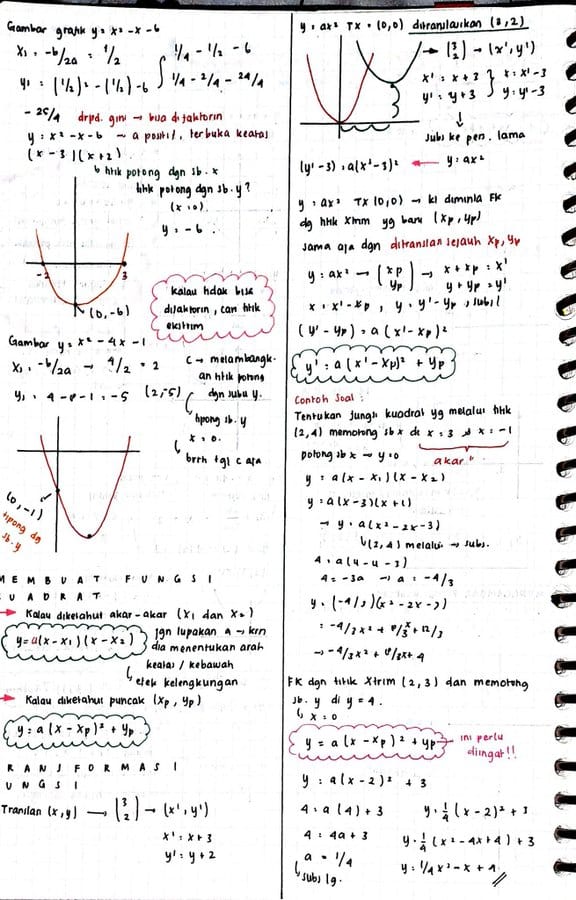 Gambar grafik y = x² - x - 6
x₁ = -b/2a = 1/2
y₁ = (1/2)² - (1/2) - 6
1/4 - 1/2 - 6
1/4 - 2/4 - 24/4
- 25/4 drpd. gini → bisa difaktorin
y = x² - x - 6 → a positif, terbuka keatas
(x - 3)(x + 2)
↳ titik potong dgn sb. x
titik potong dgn sb. y?
(x = 0)
y = -6
-2
3
(0, -6)
Kalau tidak bisa
difaktorin, cari titik
ekstrim
Gambar y = x² - 4x - 1
x₁ = -b/2a → 4/2 = 2
y₁ = 4 - 8 - 1 = -5 (2, -5)
c → melambangk-
an titik potong
dgn subu y.
tipong sb. y
x = 0.
brrti tgl c aja
(0, -1)
tipong dg
sb. y
MEMBUAT FUNGSI
UADRAT
→ Kalau diketahui akar-akar (x₁ dan x₂)
y = a(x - x₁)(x - x₂)
jgn lupakan a → krn
dia menentukan arah
keatas / kebawah
↳ efek kelengkungan
→ Kalau diketahui puncak (xp, yp)
y = a(x - xp)² + yp
RANSFORMASI
UNGSI
Translan (x, y) → (3 2) → (x', y')
x' = x + 3
y' = y + 2
y = ax² TX = (0,0) ditranslasikan (3, 2)
→ (3 2) → (x', y')
x' = x + 3 } x = x' - 3
y' = y + 3 } y = y' - 3
↓
subs ke pers. lama
(y' - 3) = a(x' - 3)² ← y = ax²
y = ax² TX (0,0) → ki diminta FK
dg titik xtrim yg baru (xp, yp)
sama aja dgn ditranslan sejauh xp, yp
y = ax² → (xp yp) → x + xp = x'
y + yp = y'
x = x' - xp, y = y' - yp, subs!
(y' - yp) = a(x' - xp)²
y' = a(x' - xp)² + yp
Contoh Soal:
Tentukan fungsi kuadrat yg melalui titik
(2, 4) memotong sb x di x = 3 & x = -1
potong sb x → y = 0 akar"
y = a(x - x₁)(x - x₂)
y = a(x - 3)(x + 1)
→ y = a(x² - 2x - 3)
↳ (2, 4) melalui → subs.
4 = a(4 - 4 - 3)
4 = -3a → a = -4/3
y = (-4/3)(x² - 2x - 3)
= -4/3x² + 8/3x + 12/3
→ -4/3x² + 8/3x + 4
FK dgn titik Xtrim (2, 3) dan memotong
sb. y di y = 4.
↳ x = 0
y = a(x - xp)² + yp → ini perlu
diingat!!
y = a(x - 2)² + 3
4 = a(4) + 3
4 = 4a + 3
a = 1/4
↳ subs lg.
y = 1/4 (x - 2)² + 3
y = 1/4 (x² - 4x + 4) + 3
y = 1/4x² - x + 4